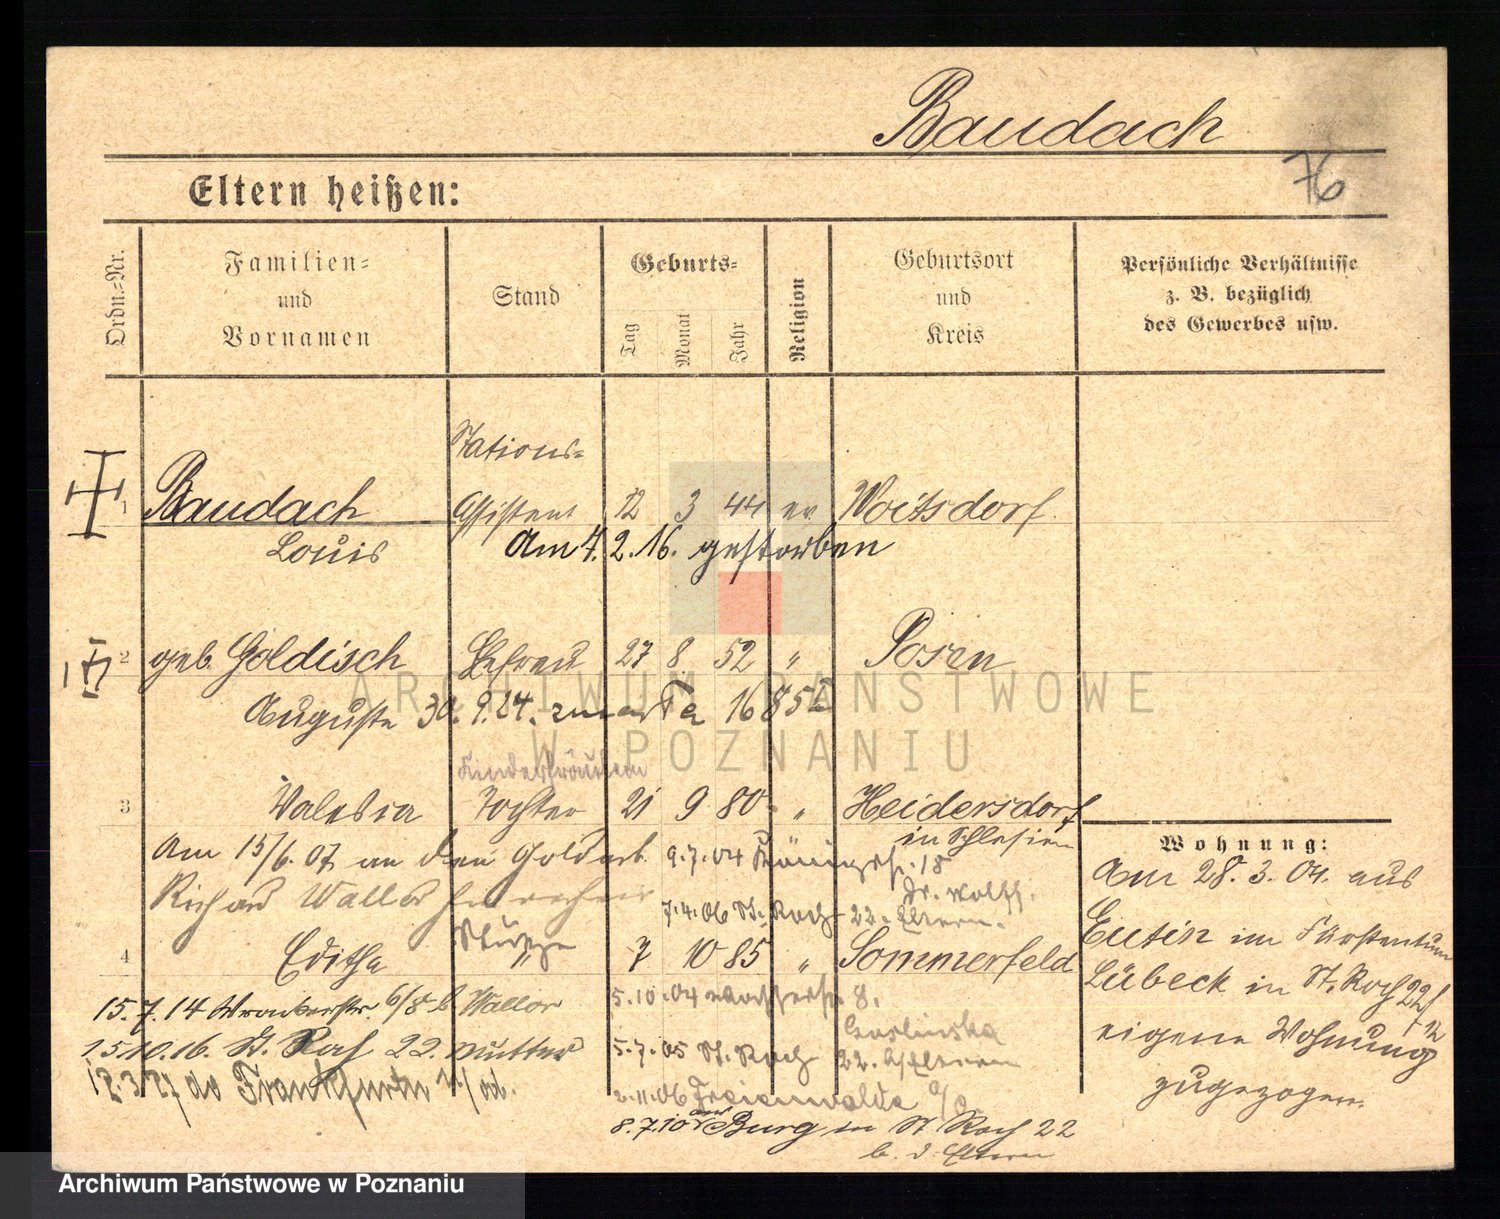 Baudach
76
Eltern heißen:
Ordn.-Nr.
Familien-
und
Vornamen
Stand
Geburts-
Tag
Monat
Jahr
Religion
Geburtsort
und
Kreis
Persönliche Verhältnisse
z. B. bezüglich
des Gewerbes usw.
Stations-
1 Baudach Assistent 12 3 44 ev Woitsdorf
Louis Am 7. 2. 16. gestorben
2 geb. Goldisch Ehefrau 27 8 52 " Posen
Auguste 30. 9. 24. zmarła
Kinderfräulein
3 Valeska Tochter 21 9 80 " Heidersdorf
in Schlesien
Am 15/6. 07 an den
9.7.04 18
Richard
Dr. Wolff.
7.4.06 St. Roch 22. Eltern.
Stütze
4 Editha " 7 10 85 " Sommerfeld
15.7.14 Wronkerstr. 6/8 b.
5.10.04 8.
15.10.16. St. Roch 22. Mutter
5.7.05 St. Roch 22. b/Eltern
12.3. do Frankfurtu n./od.
2.11.06 Freienwalde a/o.
8.7.10 aus Burg in St Roch 22
b. d. Eltern
Wohnung:
Am 28. 3. 04. aus
Eutin im Fürstentum
Lübeck in St. Roch 22
eigene Wohnung
zugezogen.
ARCHIWUM PAŃSTWOWE
W POZNANIU
Archiwum Państwowe w Poznaniu